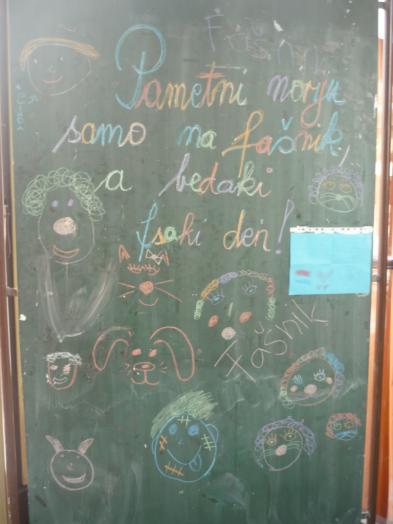 Pametni norju
samo na fašnik
a bedaki
fsaki den!
Fašnik